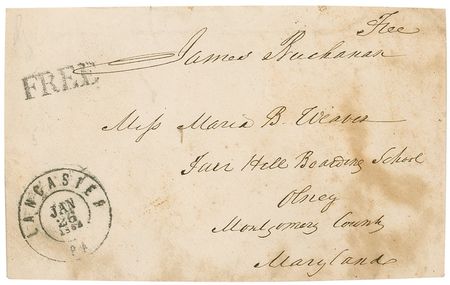 Free
James Buchanan
FREE
Miss Maria B. Weaver
Fair Hill Boarding School
Olney
Montgomery County
Maryland
LANCASTER
JAN
26
PA